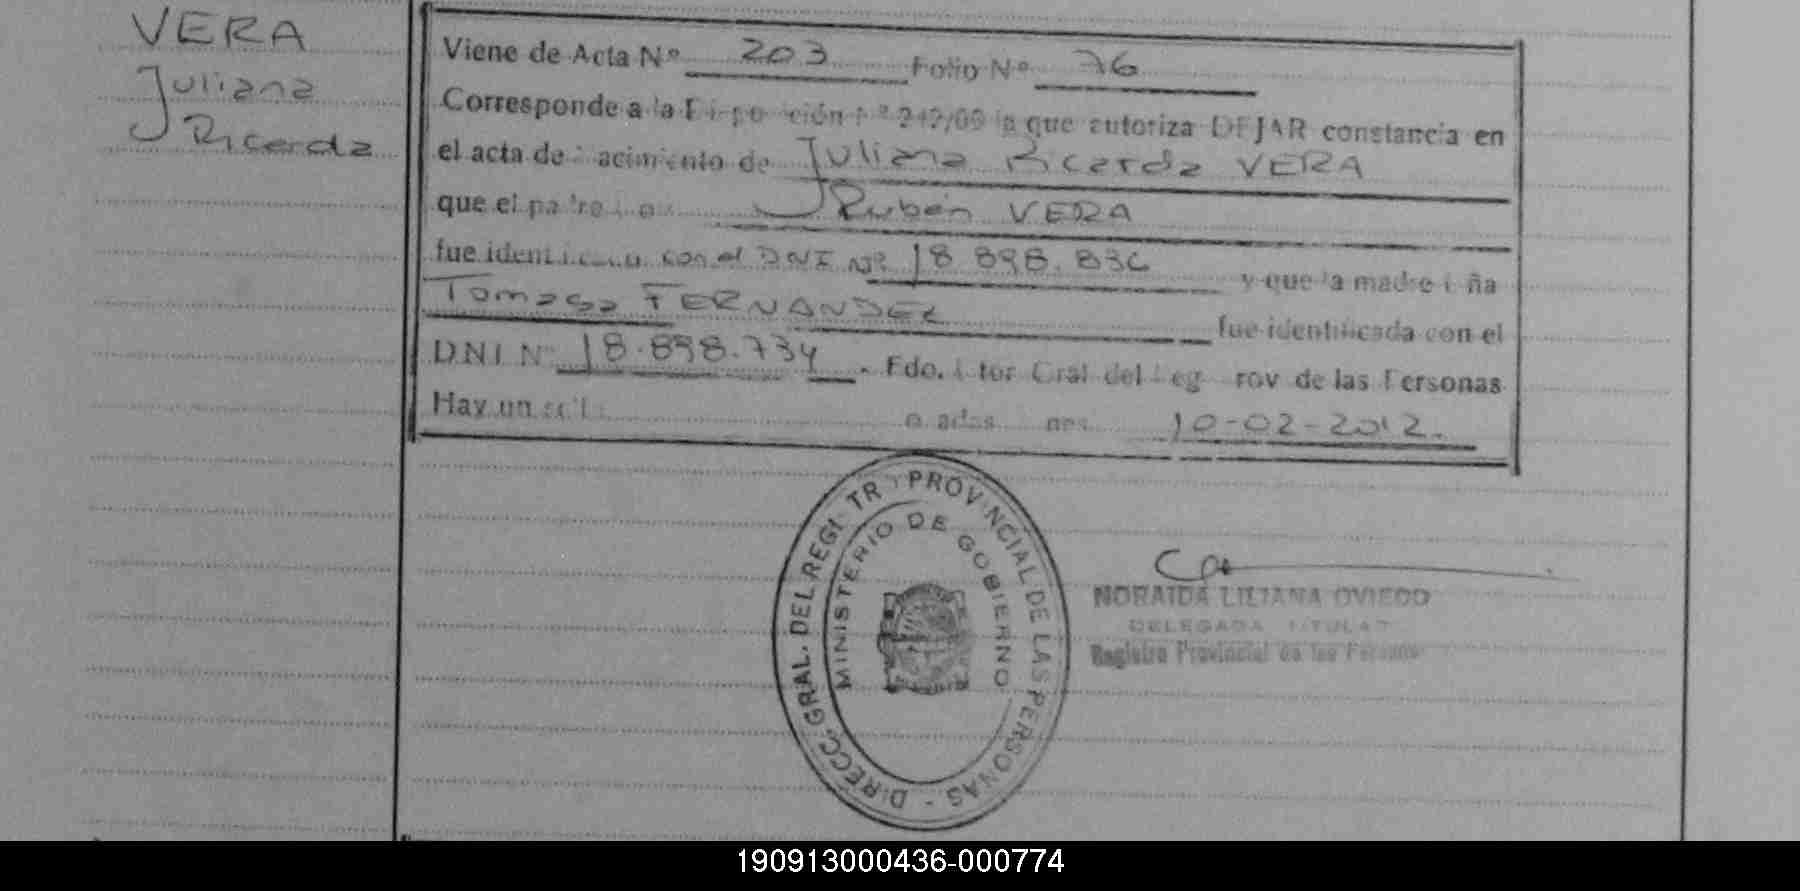 VERA
Juliana
Ricarda
Viene de Acta Nº 203 Folio Nº 76
Corresponde a la que autoriza DEJAR constancia en
el acta de nacimiento de Juliana Ricarda VERA
que el padre Rubén VERA
fue identificado con el DNI Nº 18 898.836 y que la madre
Tomasa FERNANDEZ fue identificada con el
DNI Nº 18.898.734. Fdo. Gral del Reg Prov de las Personas
Hay un sello 10-02-2012.
DIRECC. GRAL. DEL REGISTRO PROVINCIAL DE LAS PERSONAS -
MINISTERIO DE GOBIERNO
NORAIDA LILIANA OVIEDO
DELEGADA TITULAR
Registro Provincial de las Personas
190913000436-000774